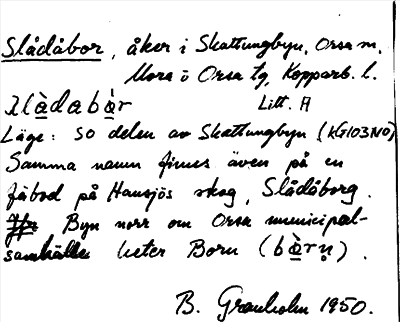 Slådåbor, åker i Skattungbyn, Orsa sn,
Mora o Orsa tg, Kopparb. l.
slàdabàr Litt. A
Läge: SO delen av Skattungbyn (KG103NO)
Samma namn finns även på en
fäbod på Hansjös skog, Slådåborg.
Jfr Byn norr om Orsa municipal-
samhälle heter Born (bàrṇ).
B. Granholm 1950.